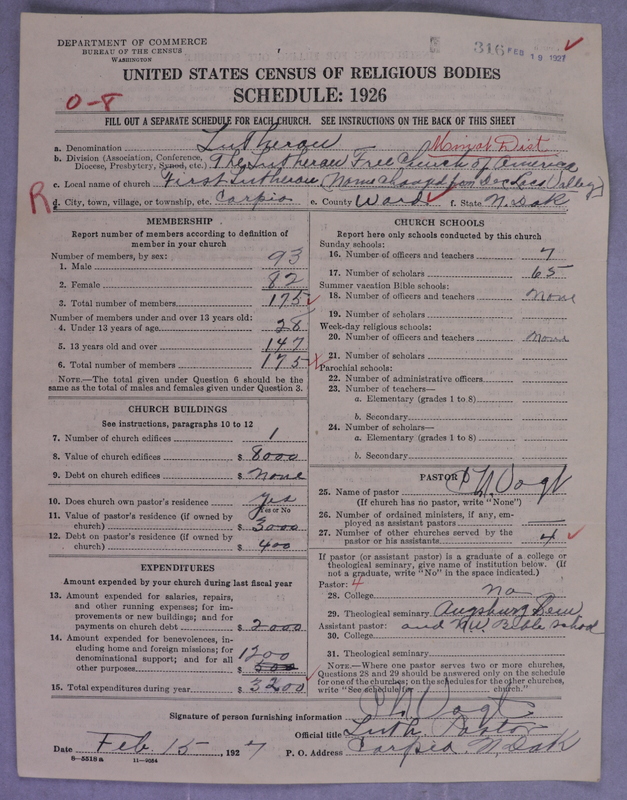 DEPARTMENT OF COMMERCE
BUREAU OF THE CENSUS
WASHINGTON
316 FEB 19 1927
UNITED STATES CENSUS OF RELIGIOUS BODIES
SCHEDULE: 1926
0-8
FILL OUT A SEPARATE SCHEDULE FOR EACH CHURCH. SEE INSTRUCTIONS ON THE BACK OF THIS SHEET
a. Denomination Lutheran Minot Dist
b. Division (Association, Conference, Diocese, Presbytery, Synod, etc.) The Lutheran Free Church of America
c. Local name of church First Lutheran (Name changed from Des Lacs Valley)
R
d. City, town, village, or township, etc. Carpio e. County Ward f. State N. Dak
MEMBERSHIP
Report number of members according to definition of member in your church
Number of members, by sex:
1. Male 93
2. Female 82
3. Total number of members 175
Number of members under and over 13 years old:
4. Under 13 years of age 28
5. 13 years old and over 147
6. Total number of members 175
NOTE.—The total given under Question 6 should be the same as the total of males and females given under Question 3.
CHURCH BUILDINGS
See instructions, paragraphs 10 to 12
7. Number of church edifices 1
8. Value of church edifices $ 8000
9. Debt on church edifices $ None
10. Does church own pastor's residence Yes
Yes or No
11. Value of pastor's residence (if owned by church) $ 3000
12. Debt on pastor's residence (if owned by church) $ 400
EXPENDITURES
Amount expended by your church during last fiscal year
13. Amount expended for salaries, repairs, and other running expenses; for improvements or new buildings; and for payments on church debt $ 2000
14. Amount expended for benevolences, including home and foreign missions; for denominational support; and for all other purposes $ 1200 500
15. Total expenditures during year $ 3200
CHURCH SCHOOLS
Report here only schools conducted by this church
Sunday schools:
16. Number of officers and teachers 7
17. Number of scholars 65
Summer vacation Bible schools:
18. Number of officers and teachers None
19. Number of scholars
Week-day religious schools:
20. Number of officers and teachers None
21. Number of scholars
Parochial schools:
22. Number of administrative officers
23. Number of teachers—
a. Elementary (grades 1 to 8)
b. Secondary
24. Number of scholars—
a. Elementary (grades 1 to 8)
b. Secondary
PASTOR
25. Name of pastor Vogt
(If church has no pastor, write "None")
26. Number of ordained ministers, if any, employed as assistant pastors
27. Number of other churches served by the pastor or his assistants 4
If pastor (or assistant pastor) is a graduate of a college or theological seminary, give name of institution below. (If not a graduate, write "No" in the space indicated.)
Pastor: 4
28. College No
29. Theological seminary Augsburg Sem
Assistant pastor: and N.W. Bible School
30. College
31. Theological seminary
NOTE.—Where one pastor serves two or more churches, Questions 28 and 29 should be answered only on the schedule for one of the churches; on the schedules for the other churches, write "See schedule for church."
Signature of person furnishing information Vogt
Official title Luth. Pastor
Date Feb 15, 1927 P. O. Address Carpio, N. Dak
8—5518 a 11—9054